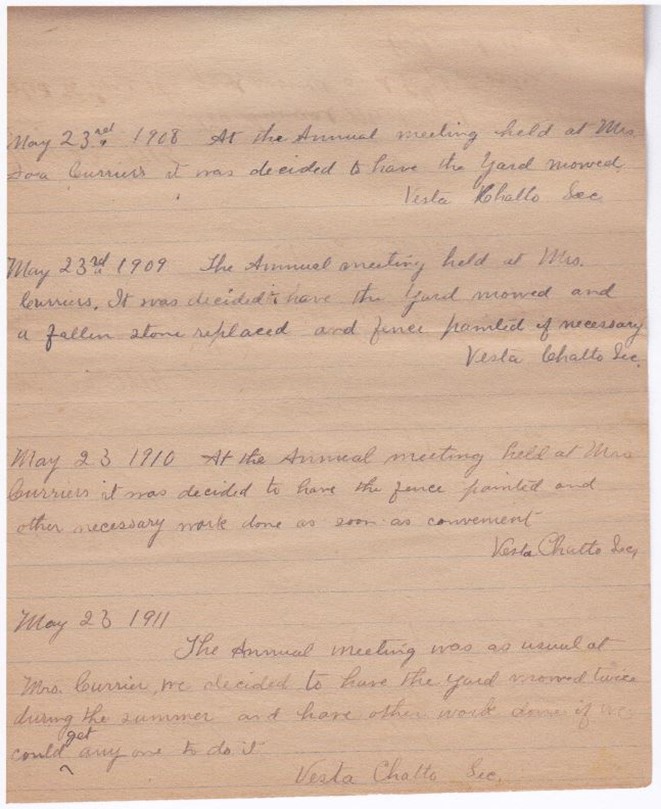 May 23rd 1908 At the Annual meeting held at Mrs.
Dora Curriers it was decided to have the Yard mowed.
Vesta Chatto Sec.
May 23rd 1909 The Annual meeting held at Mrs.
Curriers. It was decided to have the Yard mowed and
a fallen stone replaced and fence painted if necessary
Vesta Chatto Sec.
May 23 1910 At the Annual meeting held at Mrs
Curriers it was decided to have the fence painted and
other necessary work done as soon as convenient
Vesta Chatto Sec,
May 23 1911
The Annual meeting was as usual at
Mrs. Currier, we decided to have the Yard mowed twice
during the summer and have other work done if we
could get any one to do it
Vesta Chatto Sec.